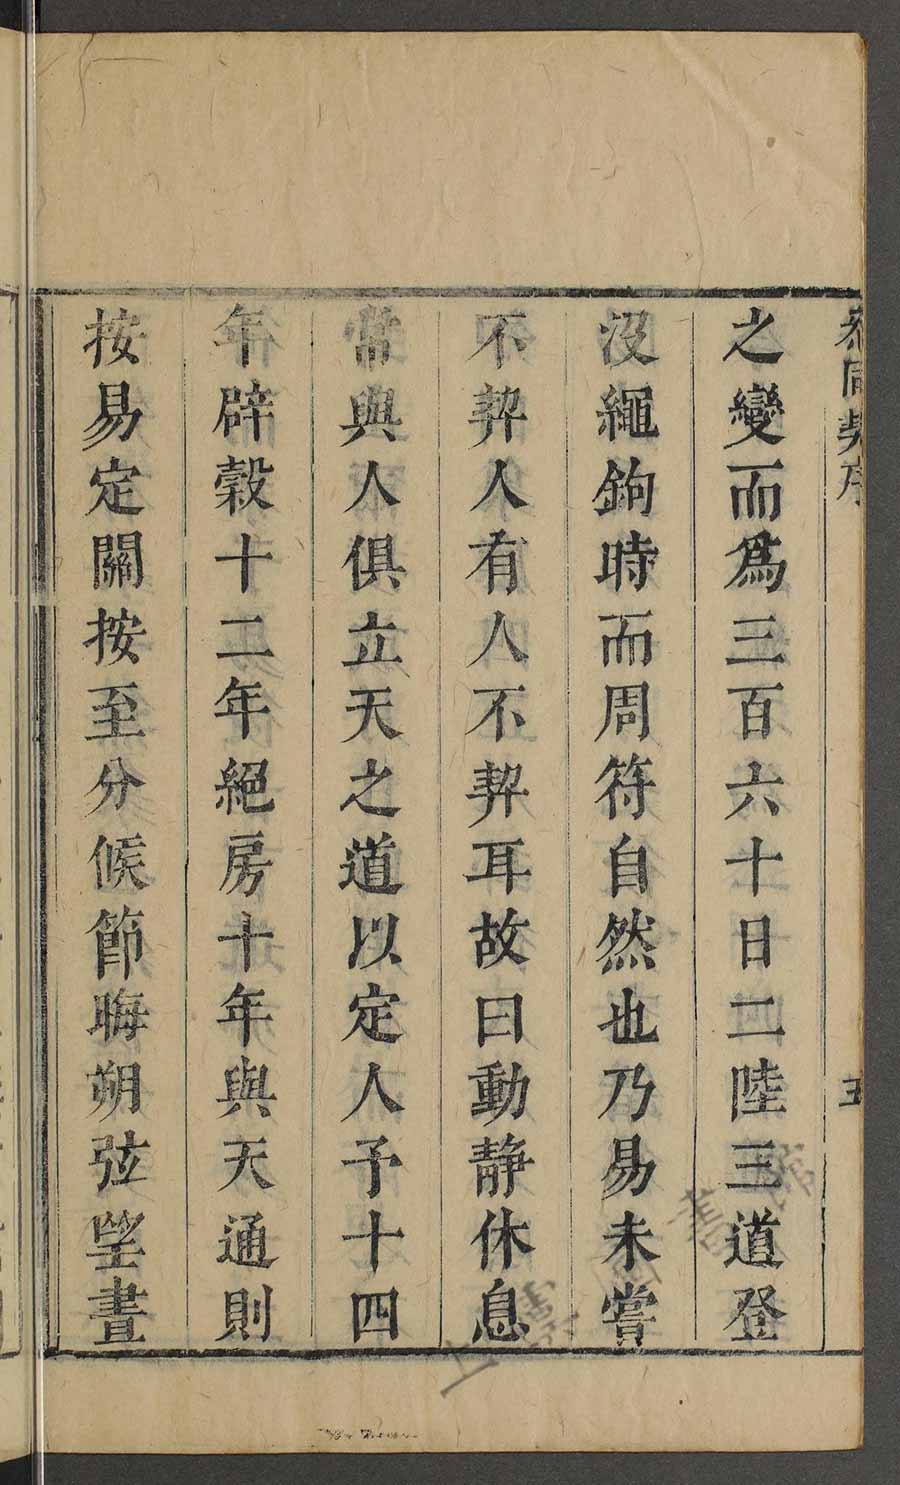 參同契序
五
之變而爲三百六十日二陸三道登
沒繩鉤時而周符自然也乃易未嘗
不契人有人不契耳故曰動靜休息
常與人俱立天之道以定人予十四
年辟穀十二年絕房十年與天通則
按易定關按至分候節晦朔弦望晝